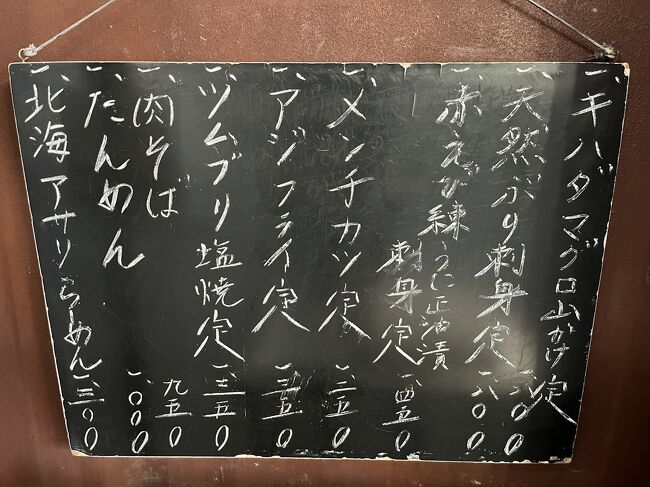 一、キハダマグロ山かけ定 一、六〇〇
一、天然ぶり刺身定 一、六〇〇
一、赤えび練うに正油漬
刺身定 一、四五〇
一、メンチカツ定 一、二五〇
一、アジフライ定
一、ツムブリ塩焼定 一、三五〇
一、肉そば 九五〇
一、たんめん 一、〇〇〇
一、北海アサリらーめん 一、三〇〇